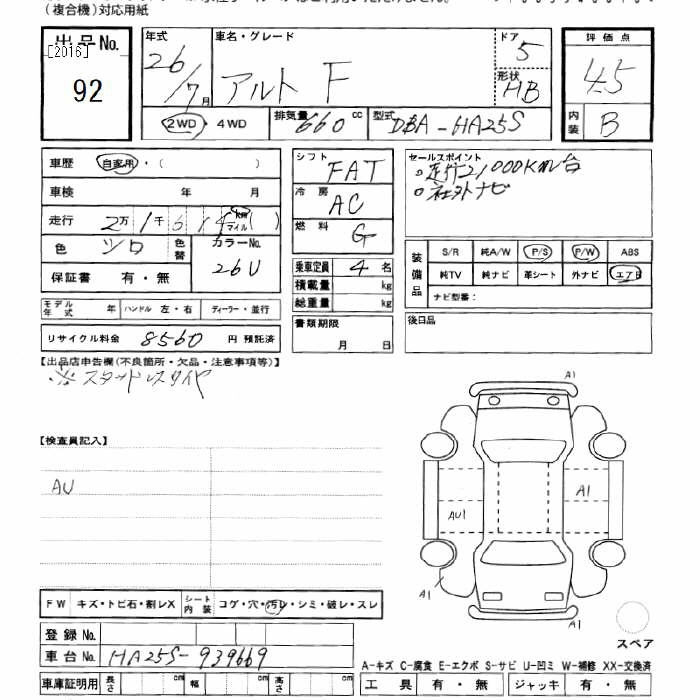 (複合機)対応用紙
出品No.
[2016]
92
年式
26/7月
車名・グレード
アルト F
ドア
5
形状
HB
評価点
4.5
内装
B
2WD・4WD
排気量 660 cc
型式 DBA-HA25S
車歴 自家用・( )
車検 年 月
走行 2万 1千 6 14 km マイル ( )
色 シロ 色替 カラーNo. 26U
保証書 有・無
モデル年式 年 ハンドル 左・右 ディーラー・並行
リサイクル料金 8560 円 預託済
シフト FAT
冷房 AC
燃料 G
乗車定員 4 名
積載量 kg
総重量 kg
書類期限
月 日
セールスポイント
○走行21000Km台
○社外ナビ
装備品
S/R 純A/W P/S P/W ABS
純TV 純ナビ 革シート 外ナビ エアB
ナビ型番:
後日品
【出品店申告欄(不良箇所・欠品・注意事項等)】
※スタッドレスタイヤ
【検査員記入】
AU
A1
A1
AU1
A1
A1
スペア
FW キズ・トビ石・割レX シート内装 コゲ・穴・汚レ・シミ・破レ・スレ
登録No.
車台No. HA25S-939669
車庫証明用 長さ cm 幅 cm 高さ cm
A-キズ C-腐食 E-エクボ S-サビ U-凹ミ W-補修 XX-交換済
工具 有・無 ジャッキ 有・無